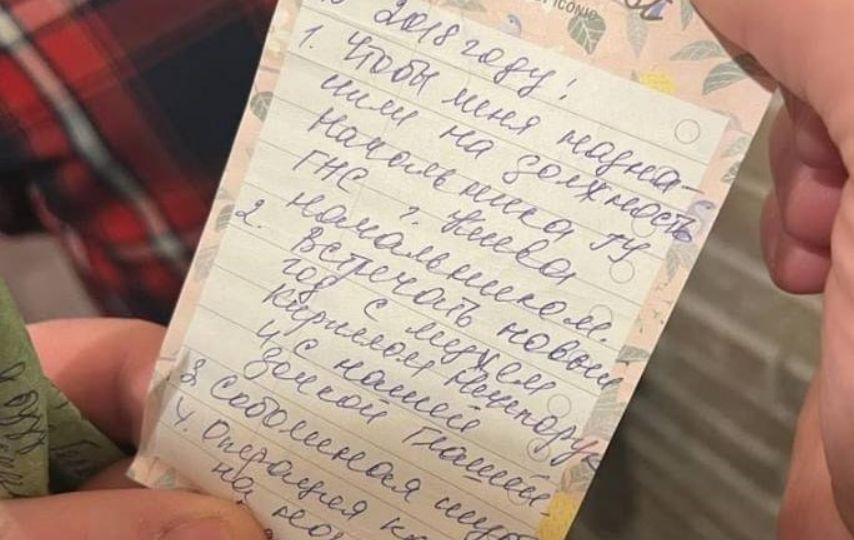 ICONIC
2018 году!
1. Чтобы меня назна-
чили на должность
Начальника ГУ
ГНС г. Киева
начальником.
2. Встречать новый
год с мужем
Кириллом
и с нашей
дочкой
3. Соболиная шуба
4. Операция
на